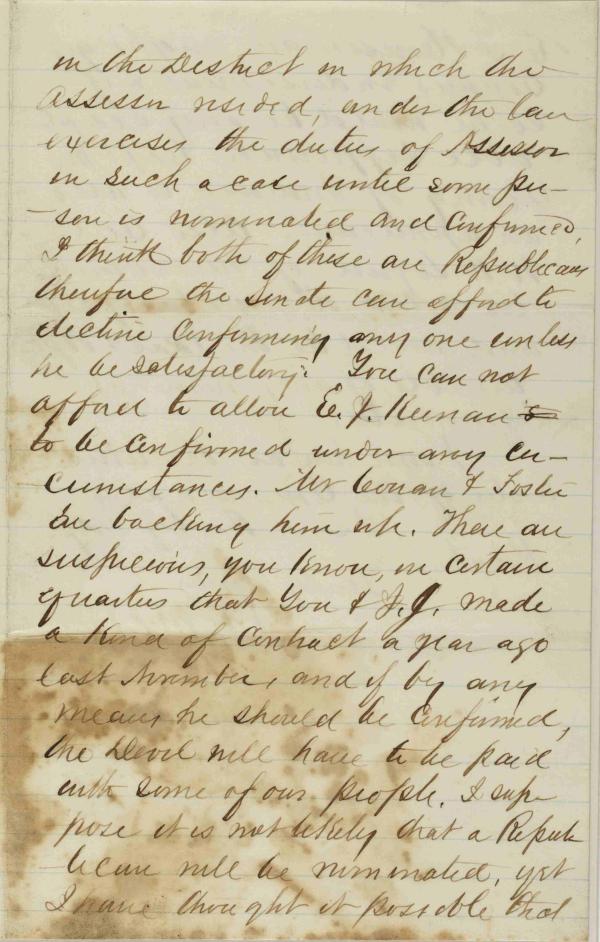 in the District in which the
Assessor resided, under the law
exercises the duties of Assessor
in such a case until some per-
-son is nominated and confirmed,
I think both of these are Republicans
therefore the Senate can afford to
decline confirming any one unless
he be satisfactory. You can not
afford to allow E. J. Keenan
to be confirmed under any cir-
cumstances. Mr Cowan & Foster
are backing him up. There are
suspicions, you know, in certain
quarters that You & J. J. made
a kind of contract a year ago
last November, and if by any
means he should be confirmed,
the Devil will have to be paid
with some of our people. I sup-
pose it is not likely that a Repub-
lican will be nominated, yet
I have thought it possible that